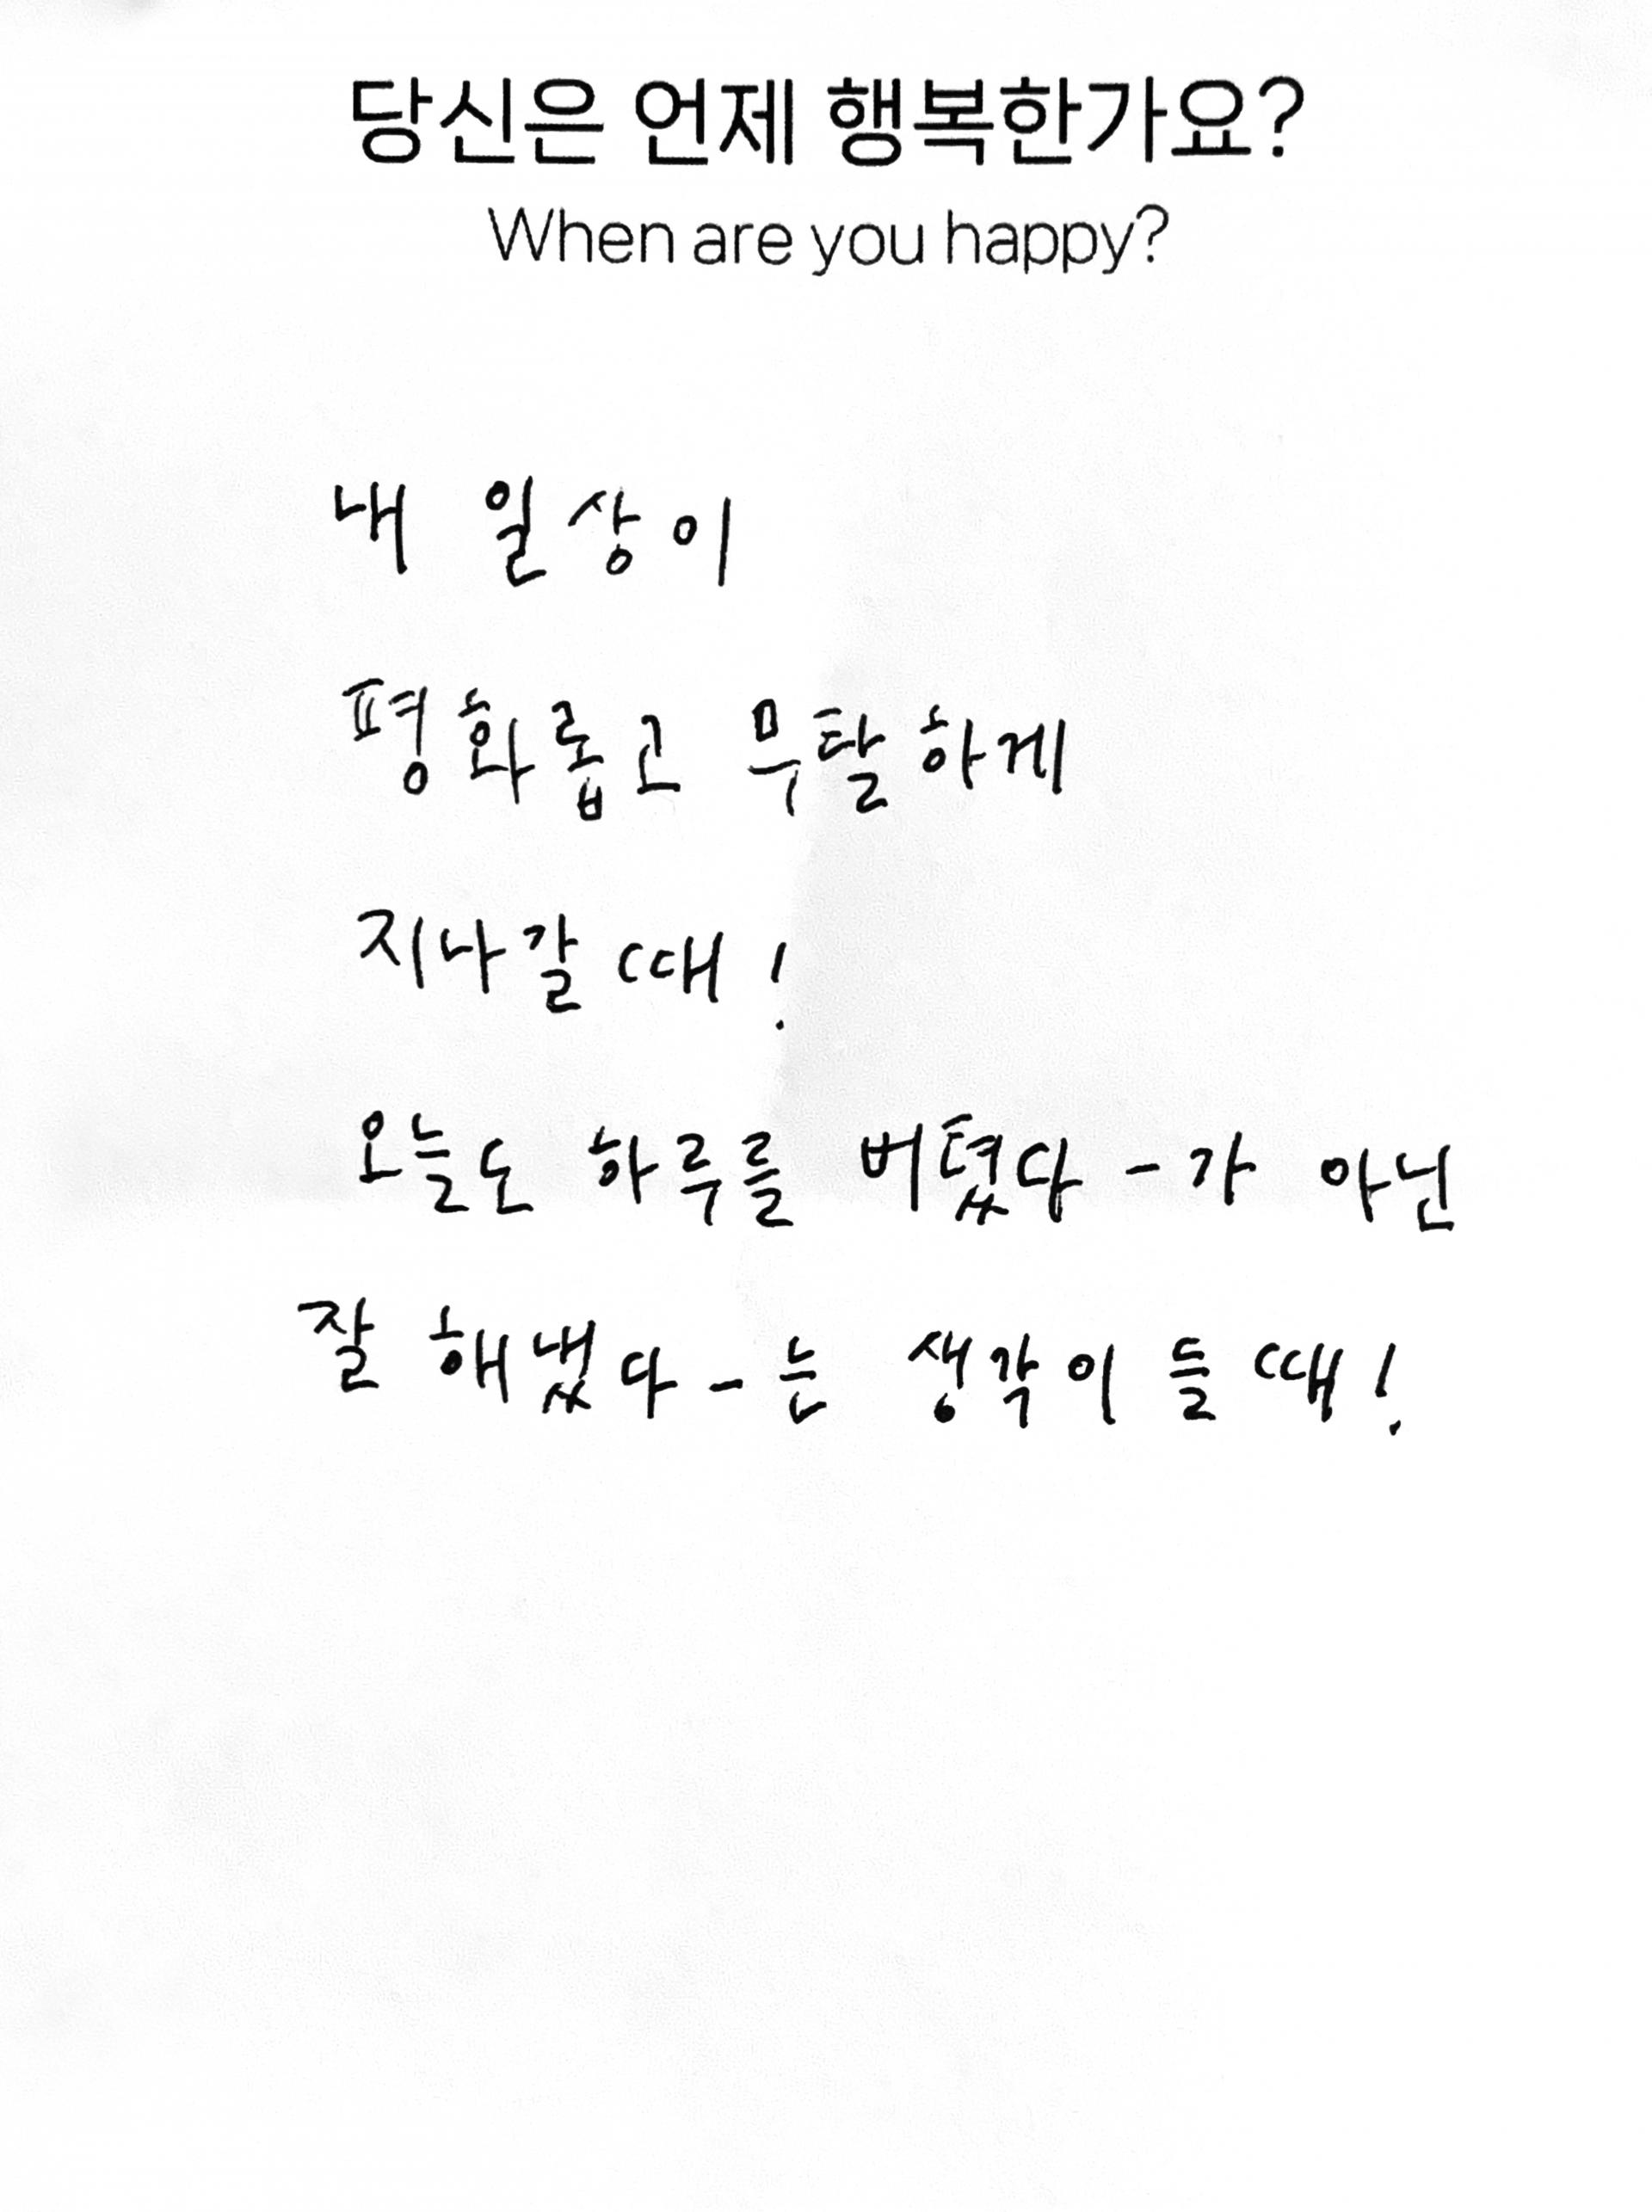 당신은 언제 행복한가요?
When are you happy?
내 일상이
평화롭고 무탈하게
지나갈 때!
오늘도 하루를 버텼다-가 아닌
잘 해냈다-는 생각이 들 때!